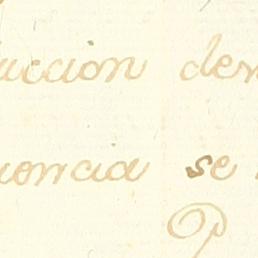 uccion den
uoncia se
P